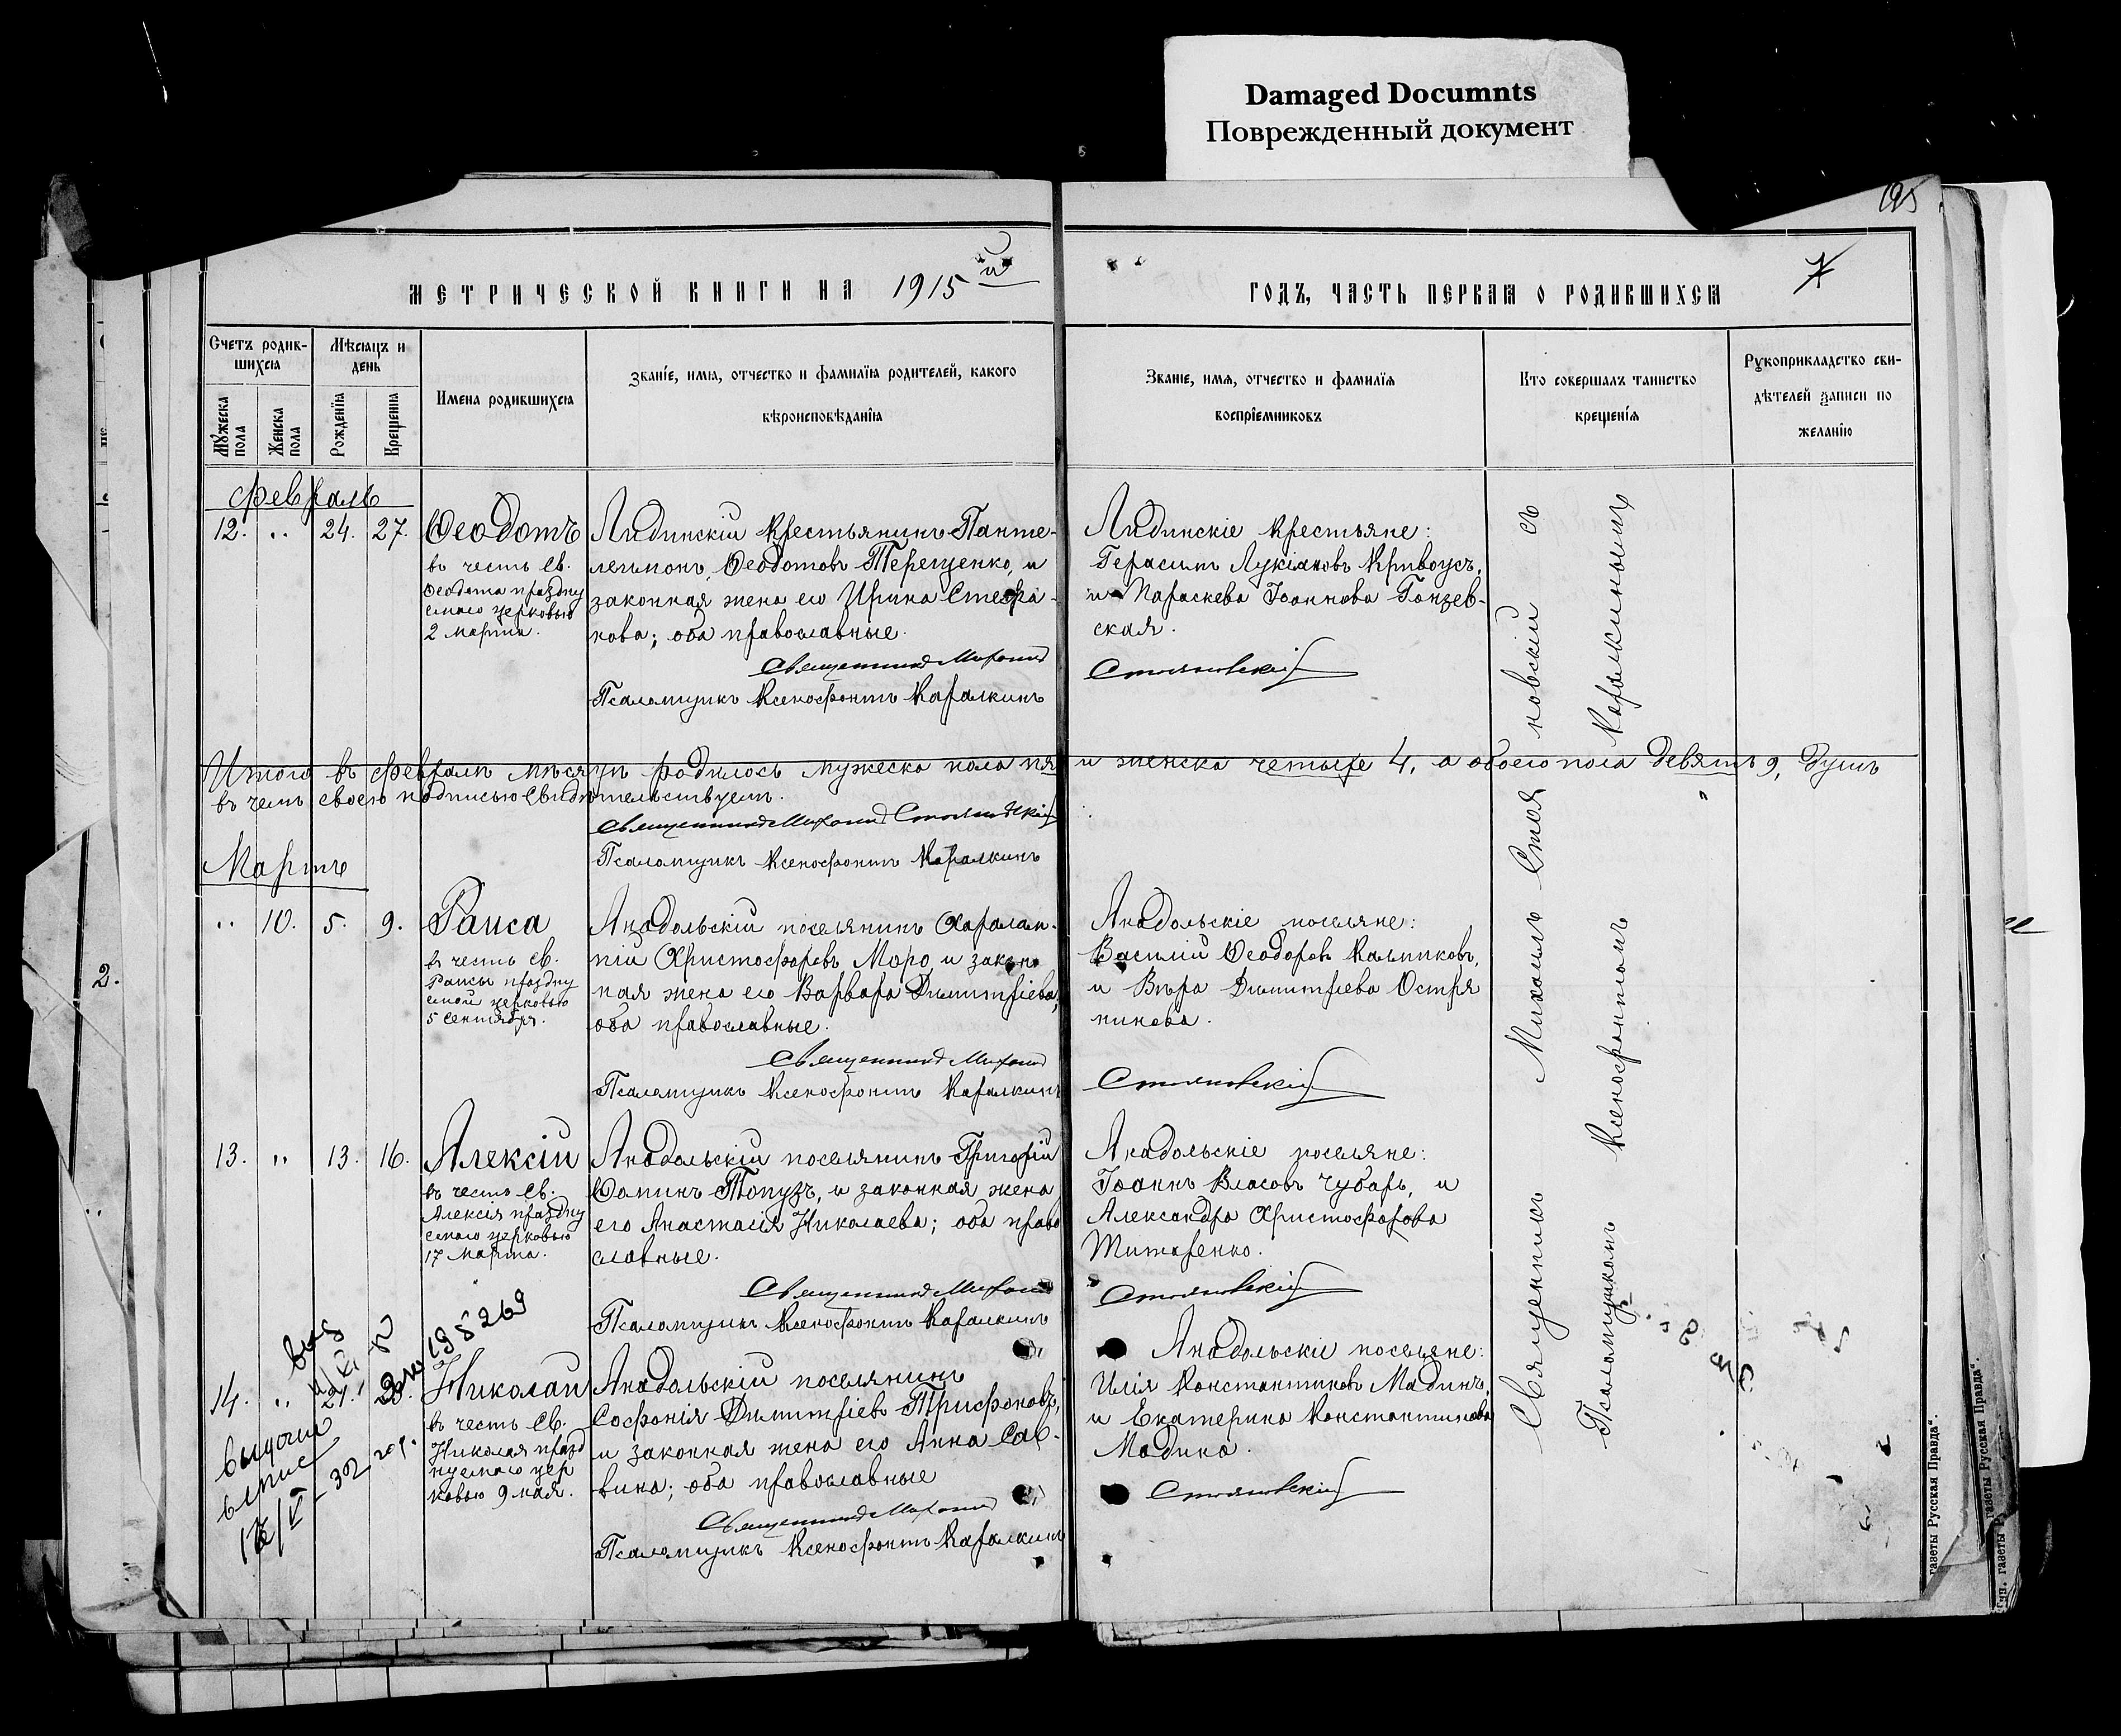 Damaged Documnts
Поврежденный документ
195
МЕТРИЧЕСКОЙ КНИГИ НА 1915 й
ГОДЪ, ЧАСТЬ ПЕРВАЯ О РОДИВШИХСЯ
7
Счетъ родив-
шихся
Мѣсяцъ и
день
Мужеска пола
Женска пола
Рожденія
Крещенія
Имена родившихся
Званіе, имя, отчество и фамилія родителей, какого
вѣроисповѣданія
Званіе, имя, отчество и фамилія
воспріемниковъ
Кто совершалъ таинство
крещенія
Рукоприкладство сви-
дѣтелей записи по
желанію
Февраль
12. " 24. 27.
Ѳеодотъ
въ честь Св.
Ѳеодота праздну
емаго церковью
2 марта.
Лидинскій крестьянинъ Панте-
леимонъ Ѳеодотовъ Терещенко, и
законная жена его Ирина Стефа-
нова; оба православные.
Священникъ Михаилъ
Псаломщикъ Ксенофонтъ Каралкинъ
Лидинскіе крестьяне:
Герасимъ Лукіановъ Кривоусъ,
и Параскева Іоаннова Гонзев-
ская.
Стояновскій
Итого въ февралѣ мѣсяцѣ родилось мужеска пола пя и женска четыре 4, а обоего пола девять 9, душъ
въ чемъ своею подписью свидѣтельствуемъ.
Священникъ Михаилъ Стояновскій
Псаломщикъ Ксенофонтъ Каралкинъ
Мартъ
" 10. 5. 9.
Раиса
въ честь Св.
Раисы праздну
емой церковью
5 Сентября.
Анадольскій поселянинъ Харалам-
пій Христофоровъ Моро, и закон
ная жена его Варвара Димитріева,
оба православные.
Священникъ Михаилъ
Псаломщикъ Ксенофонтъ Каралкинъ
Анадольскіе поселяне:
Василій Ѳеодоровъ Калмиковъ,
и Вѣра Димитріева Остря
никова.
Стояновскій
13. " 13. 16.
Алексій
въ честь Св.
Алексія праздну
емаго церковью
17 Марта.
Анадольскій поселянинъ Григорій
Ѳоминъ Топузъ, и законная жена
его Анастасія Николаева; оба право
славные.
Священникъ Михаилъ
Псаломщикъ Ксенофонтъ Каралкинъ
Анадольскіе поселяне:
Іоаннъ Власовъ Чубарь, и
Александра Христофорова
Титаренко.
Стояновскій
14. " 21. 23.
Николай
въ честь Св.
Николая празд
нуемаго цер
ковью 9 мая.
Анадольскій поселянинъ
Софонія Димитріевъ Трифоновъ,
и законная жена его Анна Сав-
вина; оба православные
Священникъ Михаилъ
Псаломщикъ Ксенофонтъ Каралкинъ
Анадольскіе поселяне:
Илія Константиновъ Мадинъ,
и Екатерина Константинова
Мадина.
Стояновскій
Священникъ Михаилъ Стояновскій съ
Псаломщикомъ Ксенофонтомъ Каралкинымъ
2.
газеты Русская Правда".
газеты Русская Правда".